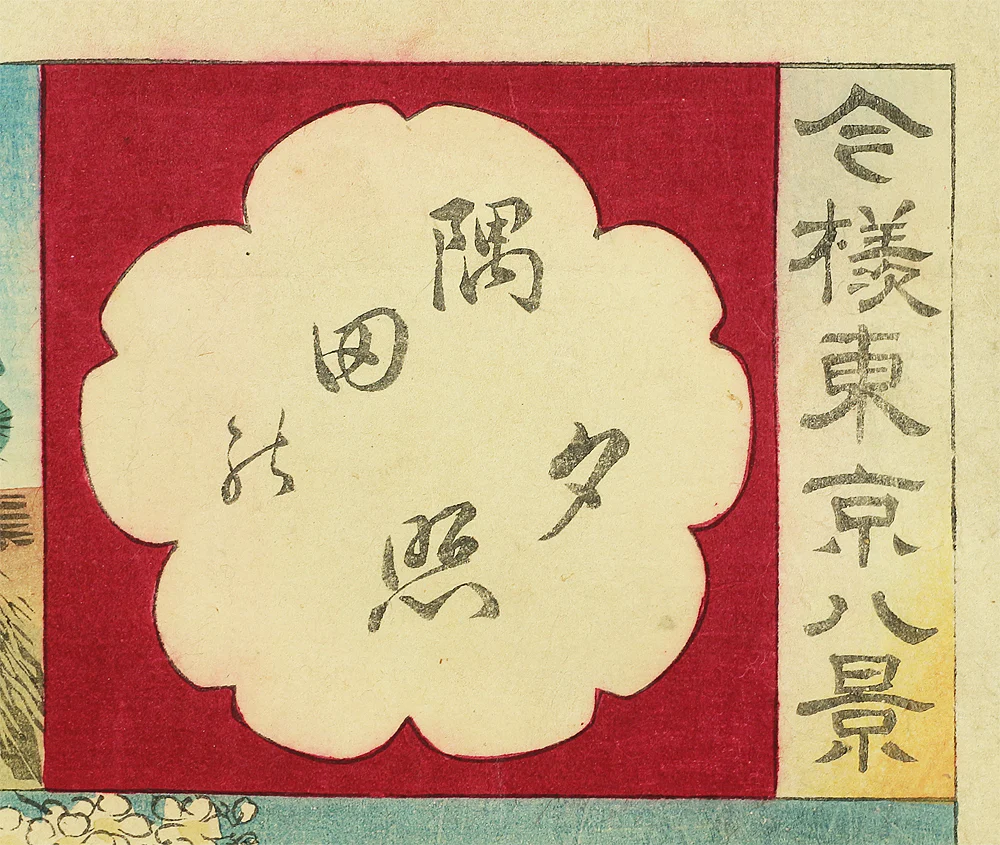 今様東京八景
隅田の
夕照